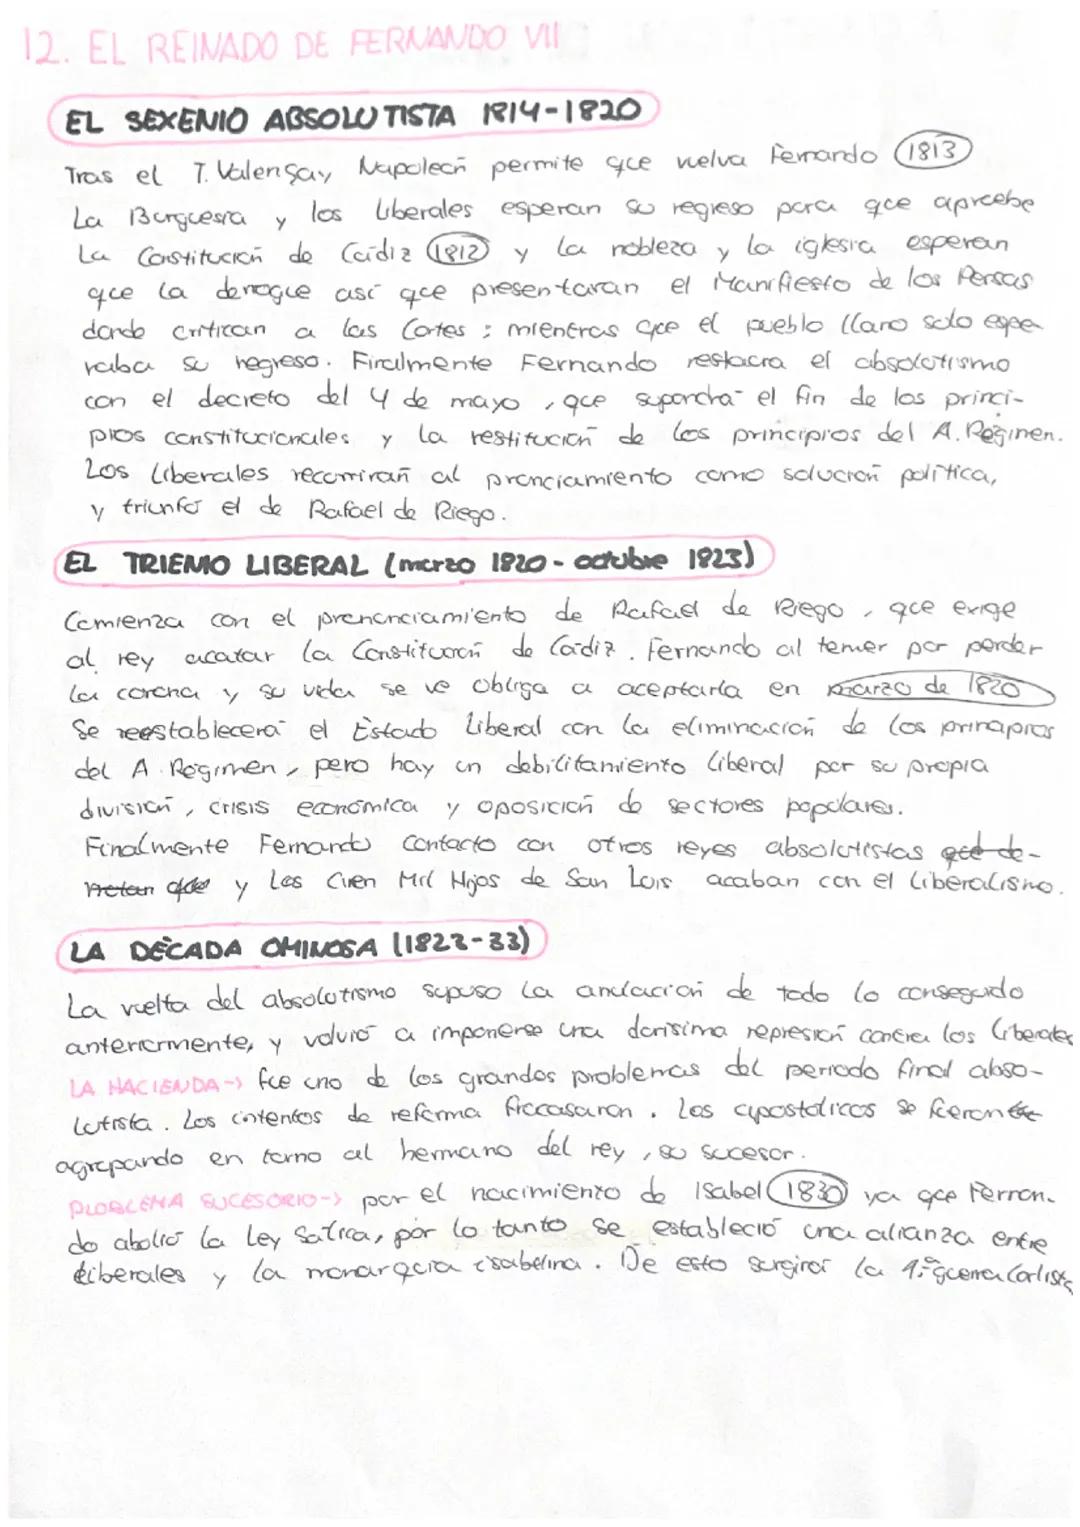 12. EL REINADO DE FERNANDO VII
EL SEXENIO ABSOLUTISTA 1814-1820
Tras el T. Valençay Napoleón permite que vuelva Fernando (1813)
La Burguesía y los liberales esperan su regreso para que apruebe
La Constitución de Cádiz (1812) y la nobleza y la iglesia esperan
que la derogue así que presentaran el Manifiesto de los Persas
donde critican a las Cortes; mientras que el pueblo llano solo espe
raba su regreso. Finalmente Fernando restaura el absolutismo
con el decreto del 4 de mayo, que supondrá el fin de los princi-
pios constitucionales y la restitución de los principios del A. Régimen.
Los liberales recorrirán al pronciamiento como solución política,
y triunfó el de Rafael de Riego.
EL TRIENIO LIBERAL (marzo 1820 - octubre 1823)
Comienza con el prenunciamiento de Rafael de Riego, que exige
al rey acatar la Constitución de Cádiz. Fernando al temer por perder
la corona y su vida se ve obliga a aceptarla en marzo de 1820
Se reestablecerá el Estado Liberal con la eliminación de los principios
del A. Régimen, pero hay un debilitamiento liberal por su propia
división, crisis económica y oposición de sectores populares.
Finalmente Fernando contacto con otros reyes absolutistas que de-
cretan que y Los Cien Mil Hijos de San Luis acaban con el liberalismo.
LA DÉCADA OMINOSA (1823-33)
La vuelta del absolutismo supuso la anulación de todo lo conseguido
anteriormente, y volvió a imponerse una durísima represión contra los liberales
LA HACIENDA -> fue uno de los grandes problemas del periodo final abso-
lutista. Los intentos de reforma fracasaron. Los apostólicos se fueron
agrupando en torno al hermano del rey, su sucesor.
PLOBLEMA SUCESORIO -> por el nacimiento de Isabel (1830) ya que Fernan-
do abolió la Ley Sálica, por lo tanto se estableció una alianza entre
liberales y la monarquía isabelina. De esto surgirá la 1ª guerra Carlista